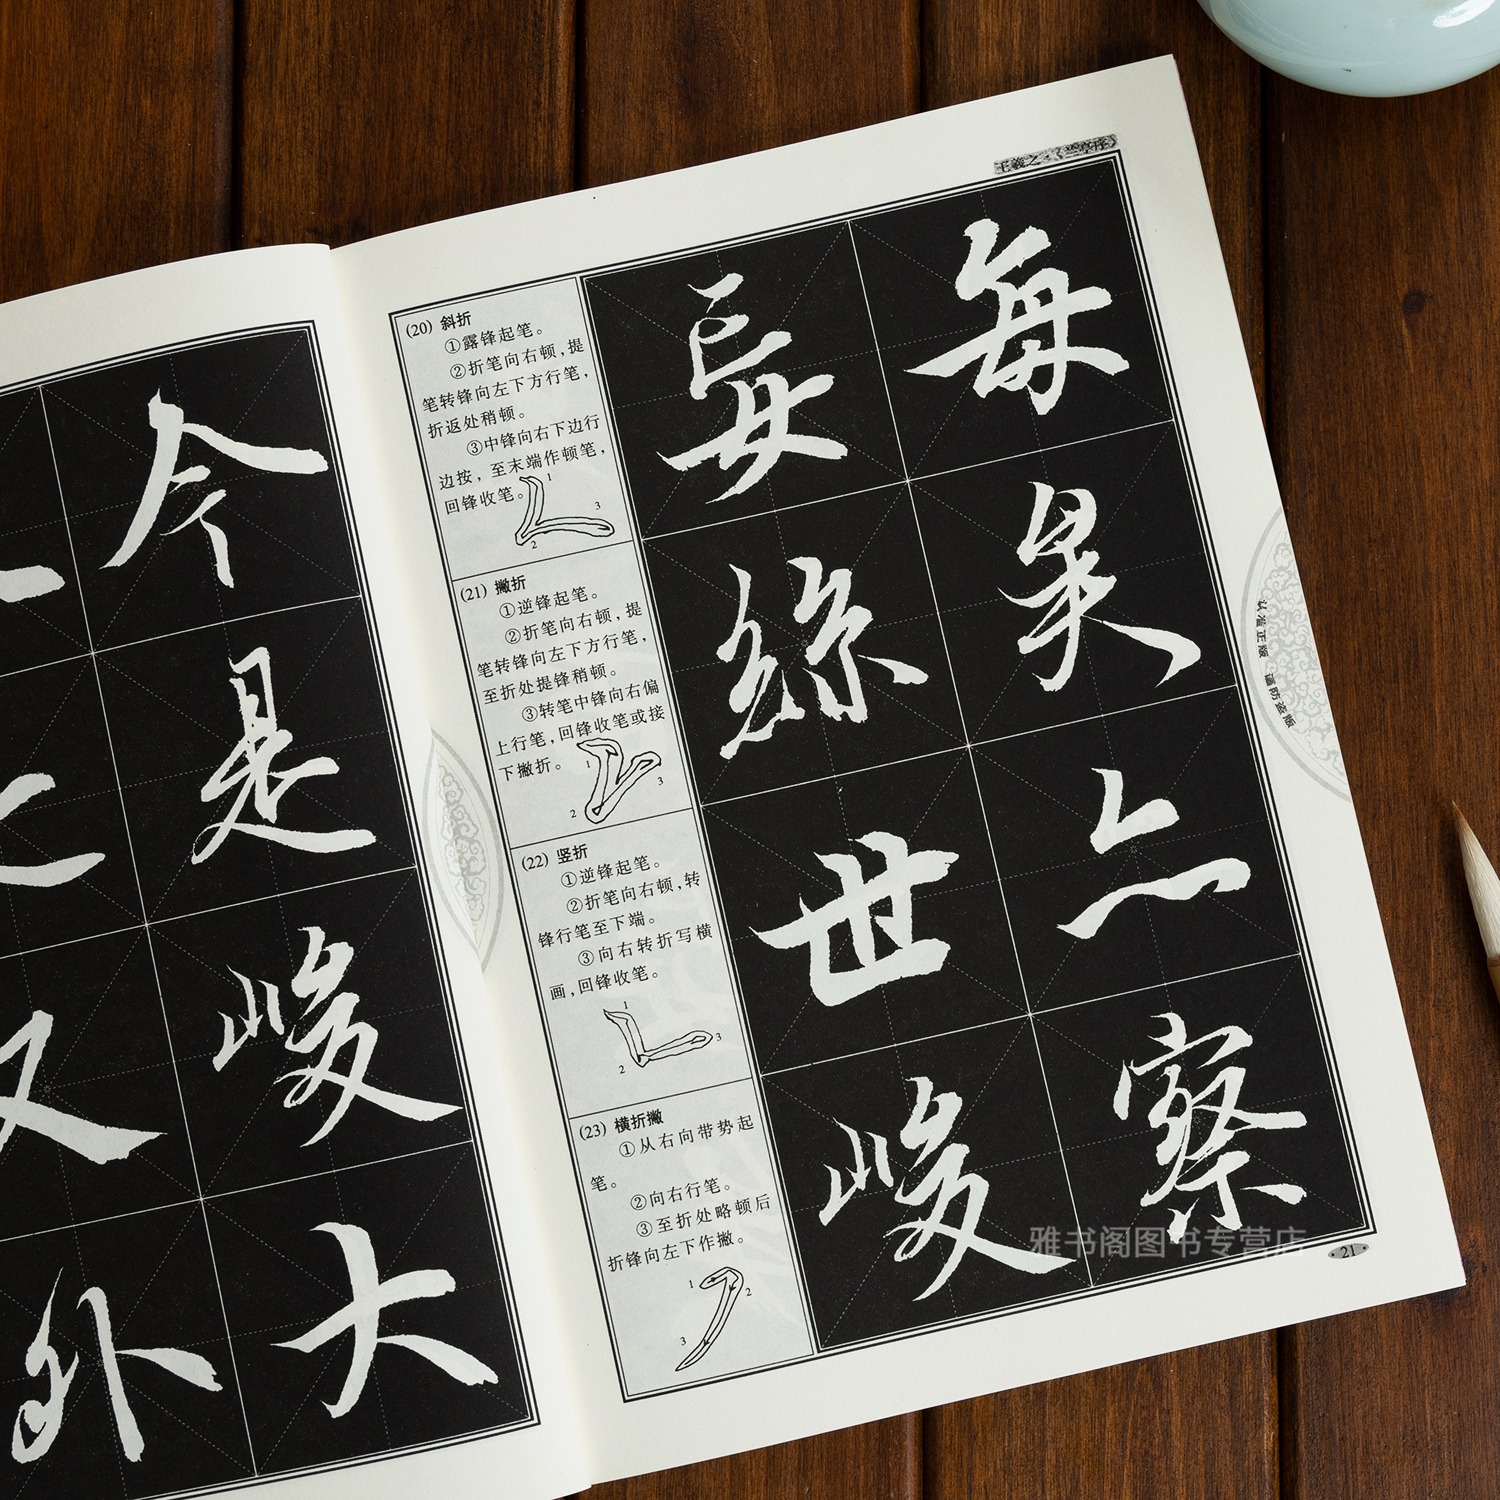 王羲之·《兰亭序》
(20) 斜折
①露锋起笔。
②折笔向右顿,提
笔转锋向左下方行笔,
折返处稍顿。
③中锋向右下边行
边按,至末端作顿笔,
回锋收笔。
1
2
3
(21) 撇折
①逆锋起笔。
②折笔向右顿,提
笔转锋向左下方行笔,
至折处提锋稍顿。
③转笔中锋向右偏
上行笔,回锋收笔或接
下撇折。
1
2
3
(22) 竖折
①逆锋起笔。
②折笔向右顿,转
锋行笔至下端。
③向右转折写横
画,回锋收笔。
1
2
3
(23) 横折撇
①从右向带势起
笔。
②向右行笔。
③至折处略顿后
折锋向左下作撇。
1
2
3
每
是
亠
察
妄
絲
世
峻
今
是
峻
大
之
又
外
雅书阁图书专营店
·21·